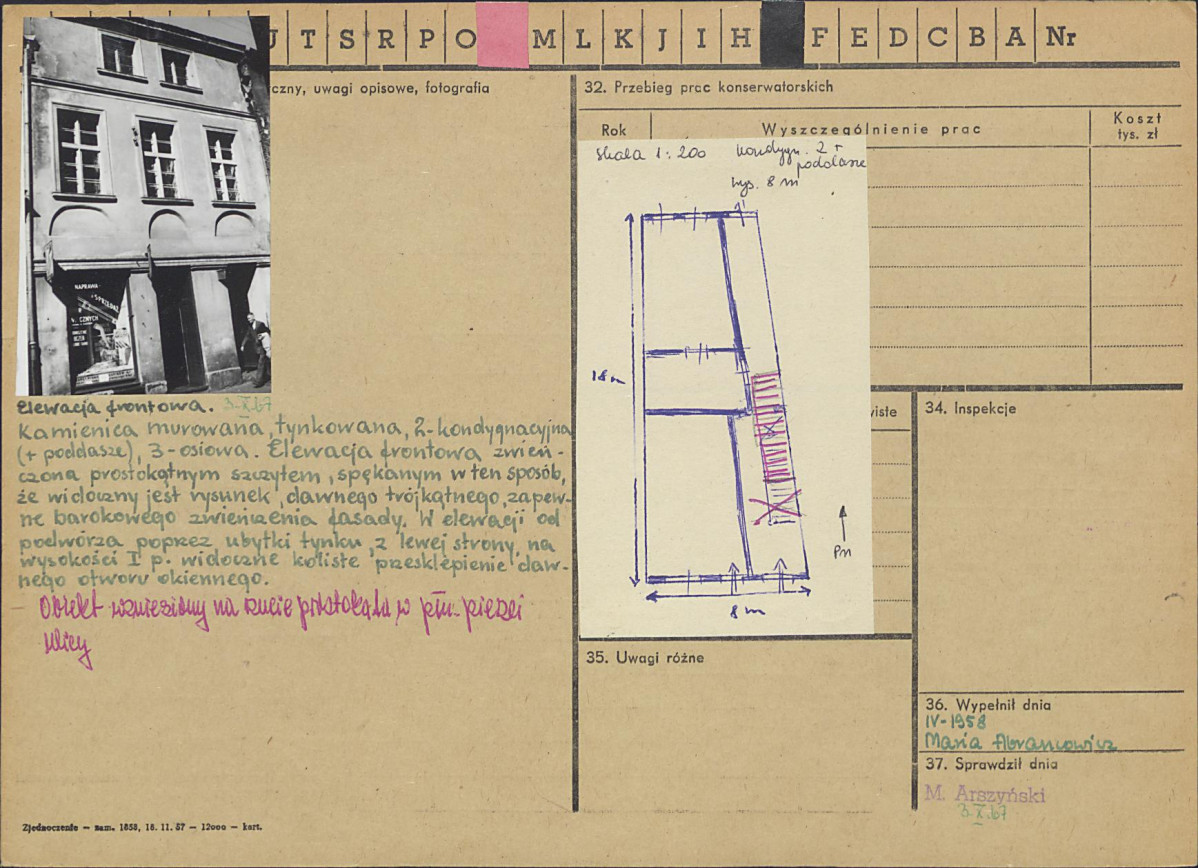 U T S R P O M L K J I H F E D C B A Nr
czny, uwagi opisowe, fotografia
NAPRAWA
Elewacja frontowa. 3.X.67
Kamienica murowana, tynkowana, 2-kondygnacyjna
(+ poddasze), 3-osiowa. Elewacja frontowa zwień-
czona prostokątnym szczytem, spękanym w ten sposób,
że widoczny jest rysunek dawnego trójkątnego, zapew-
ne barokowego zwieńczenia fasady. W elewacji od
podwórza poprzez ubytki tynku, z lewej strony, na
wysokości I p. widoczne koliste przesklepienie daw-
nego otworu okiennego.
Obiekt wzniesiony na rzucie prostokąta w płn. pierzei
ulicy
Zjednoczenie — zam. 1858, 18. 11. 57 — 12000 — kart.
32. Przebieg prac konserwatorskich
Rok
Wyszczególnienie prac
Koszt
tys. zł
skala 1:200
kondygn. 2 +
poddasze
wys. 8 m
18 m
8 m
Pn
wiste
34. Inspekcje
35. Uwagi różne
36. Wypełnił dnia
IV-1958
Maria Abramowicz
37. Sprawdził dnia
M. Arszyński
3.X.67